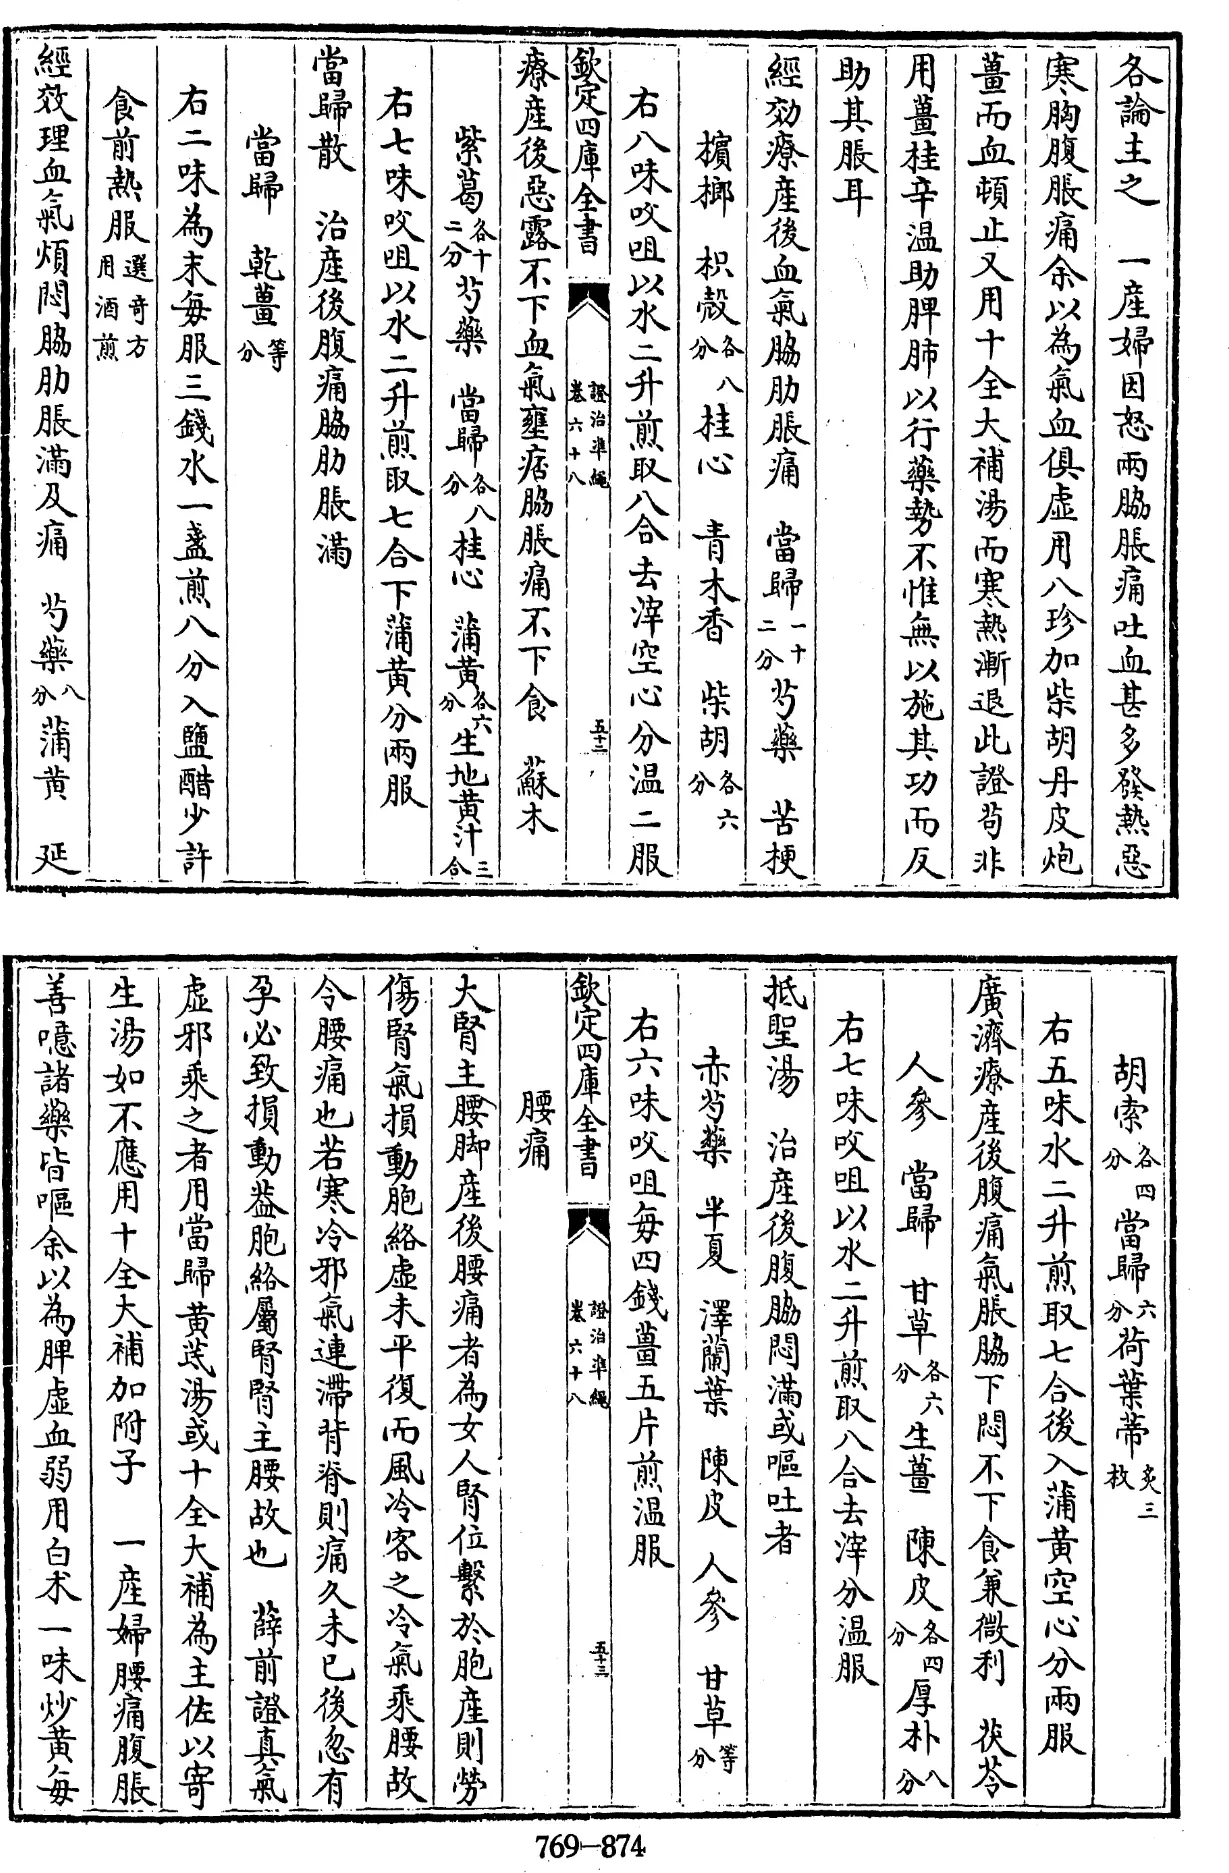 各論主之　一產婦因怒兩脇脹痛吐血甚多發熱惡
寒胸腹脹痛余以為氣血俱虛用八珍加柴胡丹皮炮
薑而血頓止又用十全大補湯而寒熱漸退此證苟非
用薑桂辛温助脾肺以行藥勢不惟無以施其功而反
助其脹耳
經効療產後血氣脇肋脹痛　當歸一十二分芍藥　苦梗
檳榔　枳殼各八分桂心　青木香　柴胡各六分
右八味㕮咀以水二升煎取八合去滓空心分温二服
欽定四庫全書　證治準繩卷六十八　五十二
療產後惡露不下血氣壅痞脇脹痛不下食　蘇木
紫葛各十二分芍藥　當歸各八分桂心　蒲黄各六分生地黄汁三合
右七味㕮咀以水二升煎取七合下蒲黄分兩服
當歸散　治產後腹痛脇肋脹滿
當歸　乾薑等分
右二味為末每服三錢水一盞煎八分入鹽醋少許
食前熱服選奇方用酒煎
經效理血氣煩悶脇肋脹滿及痛　芍藥八分蒲黄　延
胡索各四分當歸六分荷葉蒂炙三枚
右五味水二升煎取七合後入蒲黄空心分兩服
廣濟療產後腹痛氣脹脇下悶不下食兼微利　茯苓
人參　當歸　甘草各六分生薑　陳皮各四分厚朴八分
右七味㕮咀以水二升煎取八合去滓分温服
抵聖湯　治產後腹脇悶滿或嘔吐者
赤芍藥　半夏　澤蘭葉　陳皮　人參　甘草等分
右六味㕮咀每四錢薑五片煎温服
欽定四庫全書　證治準繩卷六十八　五十三
腰痛
大腎主腰脚產後腰痛者為女人腎位繫於胞產則勞
傷腎氣損動胞絡虛未平復而風冷客之冷氣乘腰故
令腰痛也若寒冷邪氣連滯背脊則痛久未已後忽有
孕必致損動葢胞絡屬腎腎主腰故也　薛前證真氣
虛邪乘之者用當歸黄芪湯或十全大補為主佐以寄
生湯如不應用十全大補加附子　一產婦腰痛腹脹
善噫諸藥皆嘔余以為脾虛血弱用白术一味炒黄每
769-874